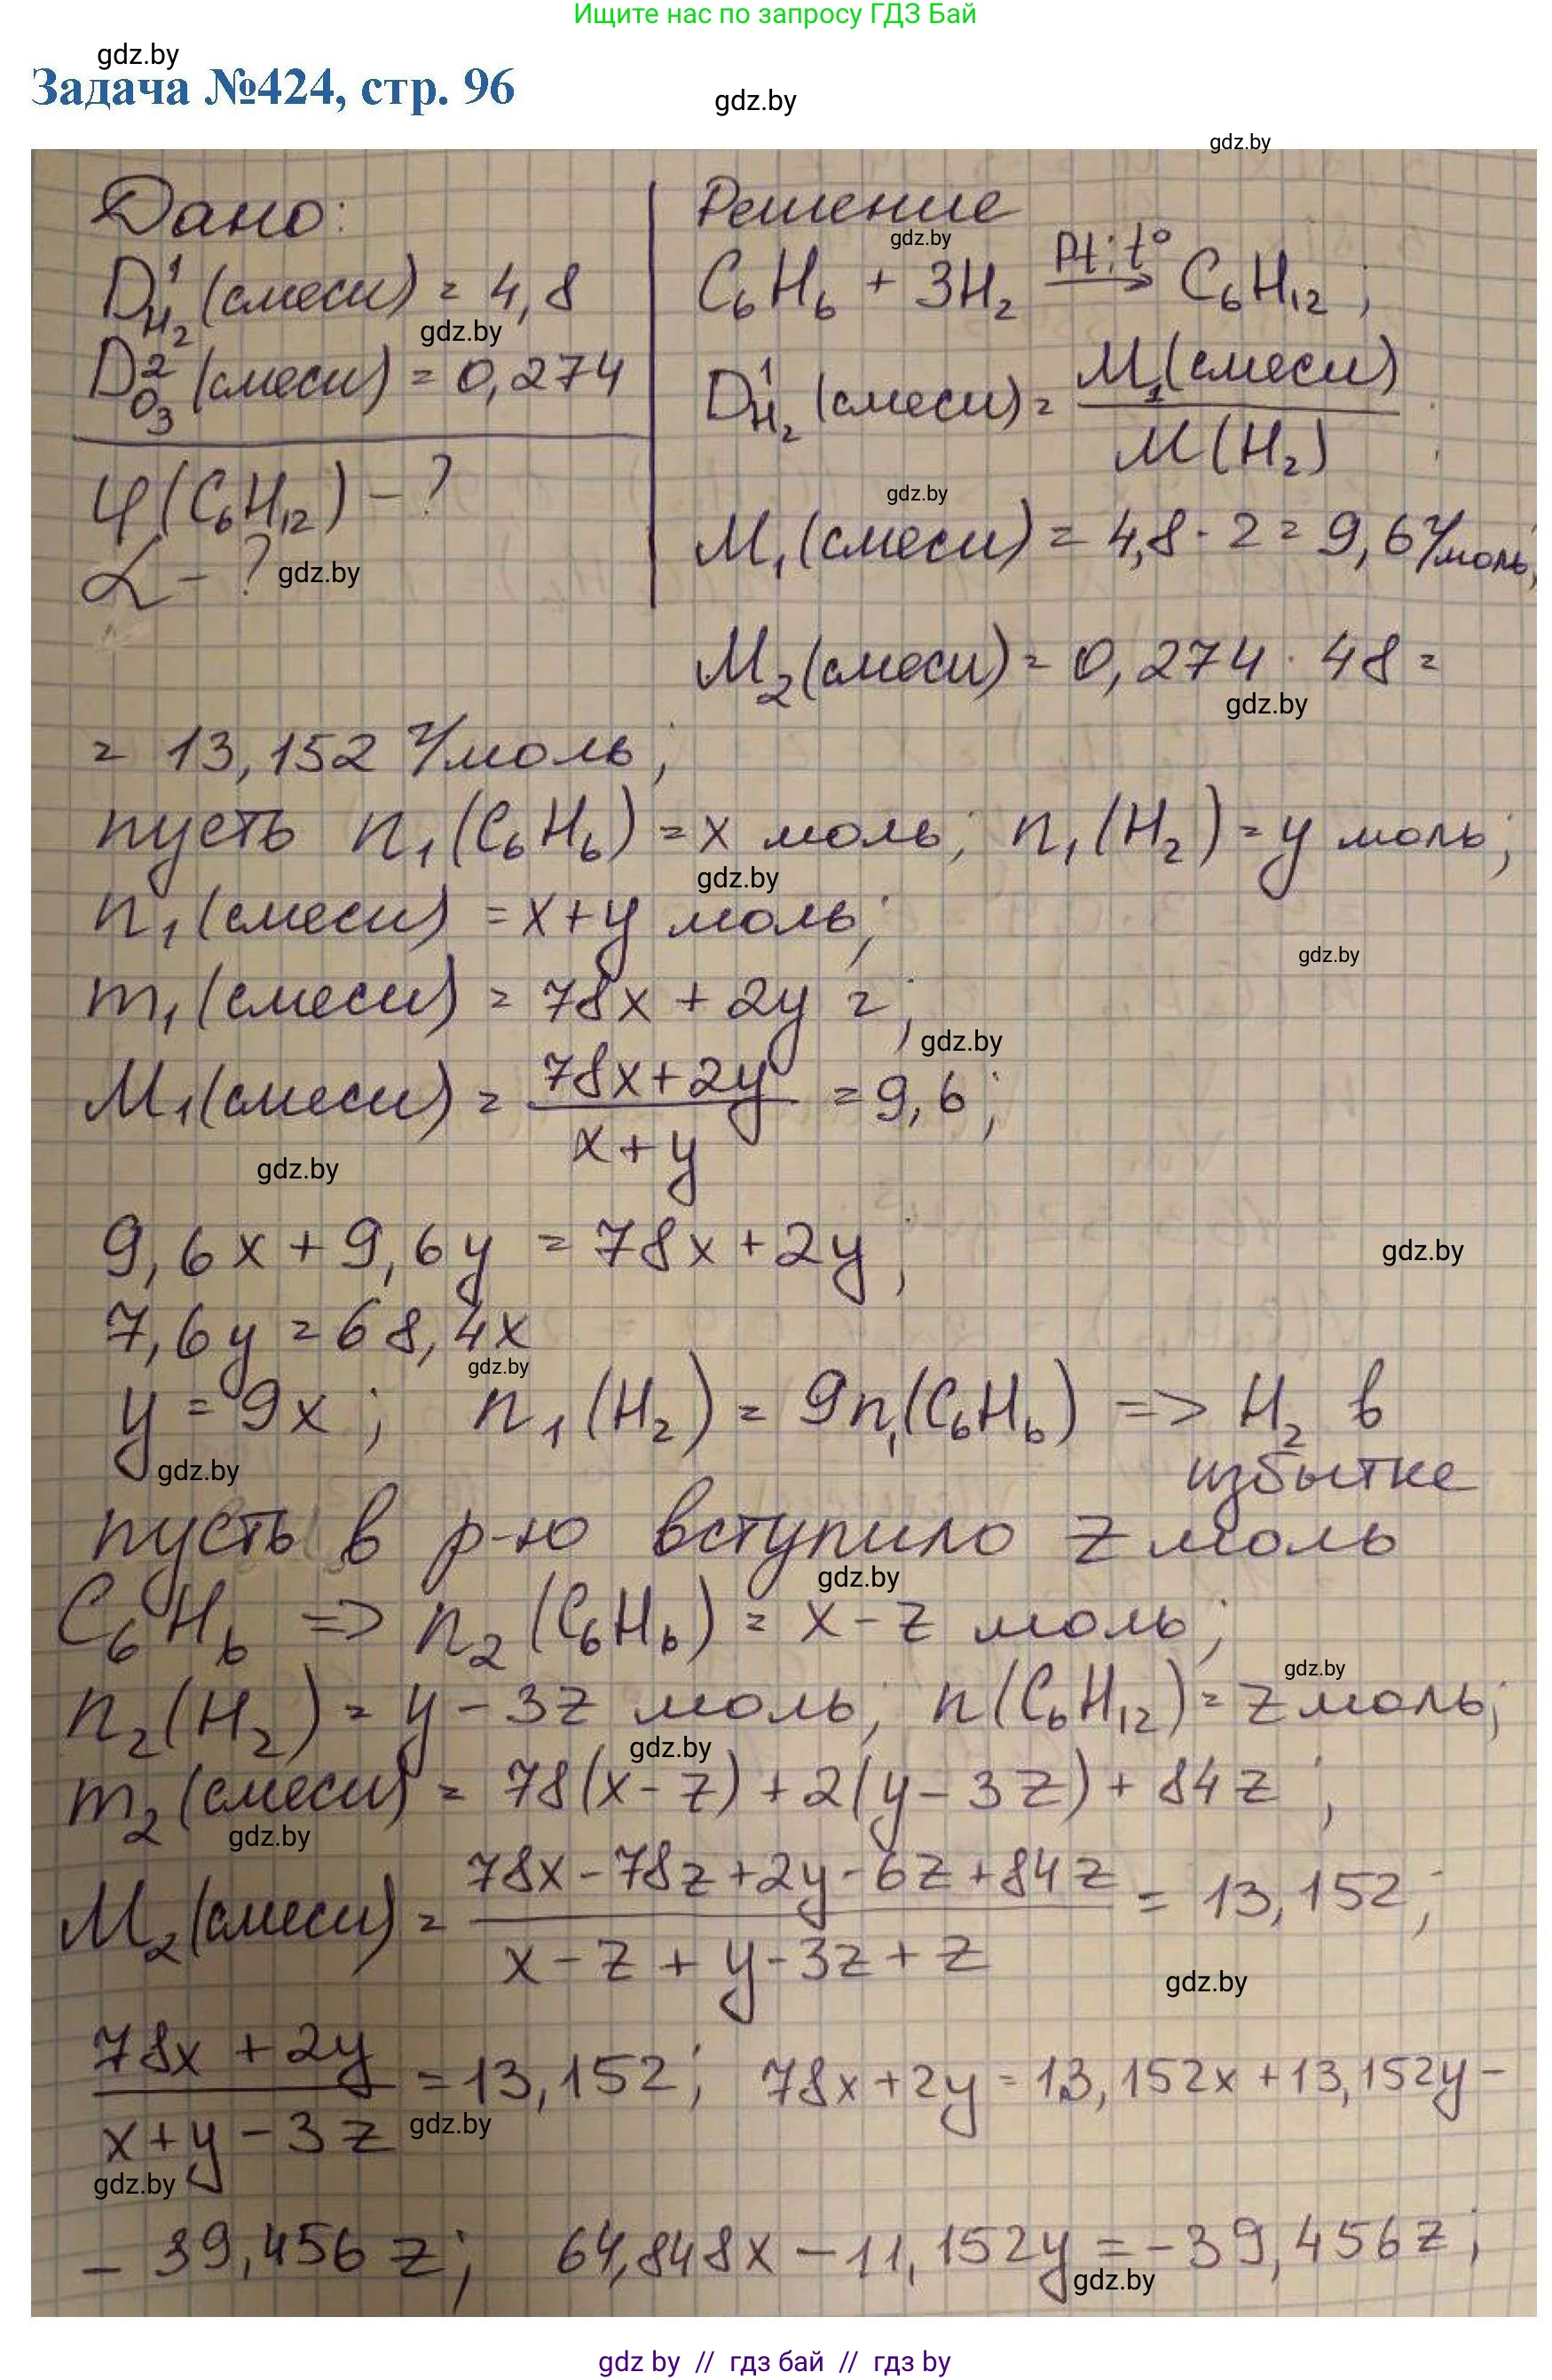 Ищите нас по запросу ГДЗ Бай
gdz.by
Задача №424, стр. 96
gdz.by
gdz.by
Дано:
D¹H₂(смеси) = 4,8
gdz.by
D²O₃(смеси) = 0,274
φ(C₆H₁₂) - ?
α - ?
gdz.by
Решение
gdz.by
C₆H₆ + 3H₂ —Pt; t°→ C₆H₁₂;
D¹H₂(смеси) = M₁(смеси) / M(H₂)
gdz.by
M₁(смеси) = 4,8 · 2 = 9,6 г/моль;
M₂(смеси) = 0,274 · 48 =
gdz.by
= 13,152 г/моль;
пусть n₁(C₆H₆) = x моль; n₁(H₂) = y моль;
gdz.by
n₁(смеси) = x+y моль;
gdz.by
m₁(смеси) = 78x + 2y г;
gdz.by
M₁(смеси) = (78x+2y) / (x+y) = 9,6;
gdz.by
9,6x + 9,6y = 78x + 2y;
gdz.by
7,6y = 68,4x
gdz.by
y = 9x; n₁(H₂) = 9n₁(C₆H₆) => H₂ в
gdz.by
избытке
пусть в р-ю вступило z моль
gdz.by
C₆H₆ => n₂(C₆H₆) = x - z моль;
gdz.by
n₂(H₂) = y - 3z моль; n(C₆H₁₂) = z моль;
gdz.by
m₂(смеси) = 78(x - z) + 2(y - 3z) + 84z;
gdz.by
M₂(смеси) = (78x - 78z + 2y - 6z + 84z) / (x - z + y - 3z + z) = 13,152;
gdz.by
(78x + 2y) / (x + y - 3z) = 13,152; 78x + 2y = 13,152x + 13,152y -
gdz.by
gdz.by
- 39,456z; 64,848x - 11,152y = -39,456z;
gdz.by
gdz by // гдз бай // гдз by